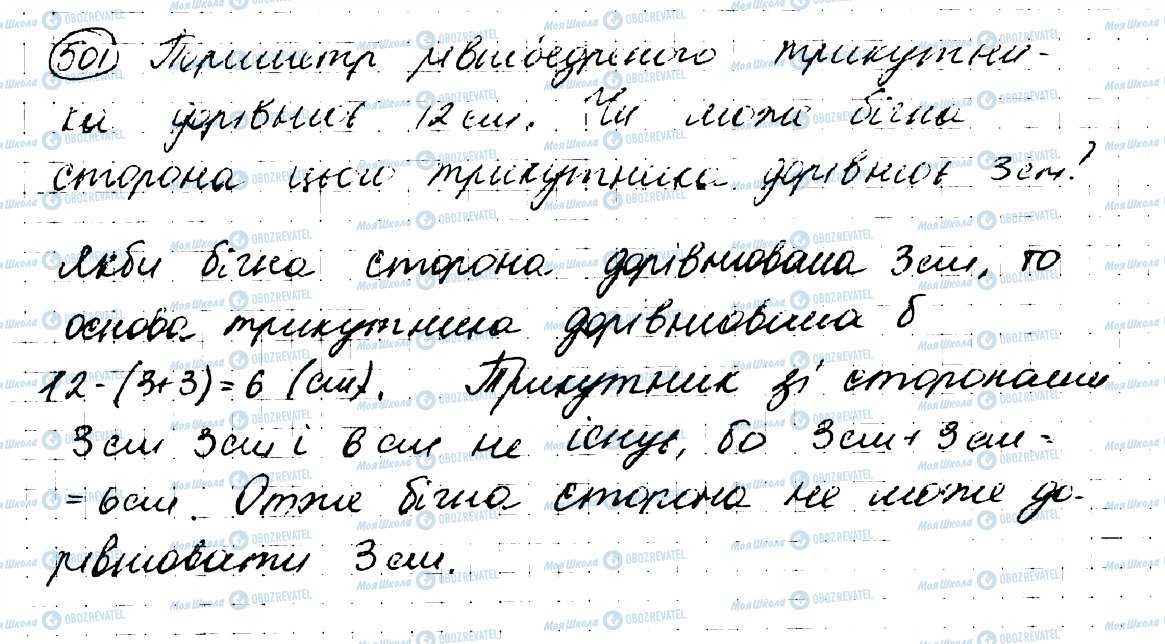 501 Периметр рівнобедреного трикутни-
ка дорівнює 12 см. Чи може бічна
сторона цього трикутника дорівнює 3 см?
Якби бічна сторона дорівнювала 3 см, то
основа трикутника дорівнювала б
12-(3+3)=6 (см). Трикутник зі сторонами
3 см 3 см і 6 см не існує, бо 3 см + 3 см =
= 6 см. Отже бічна сторона не може до-
рівнювати 3 см.